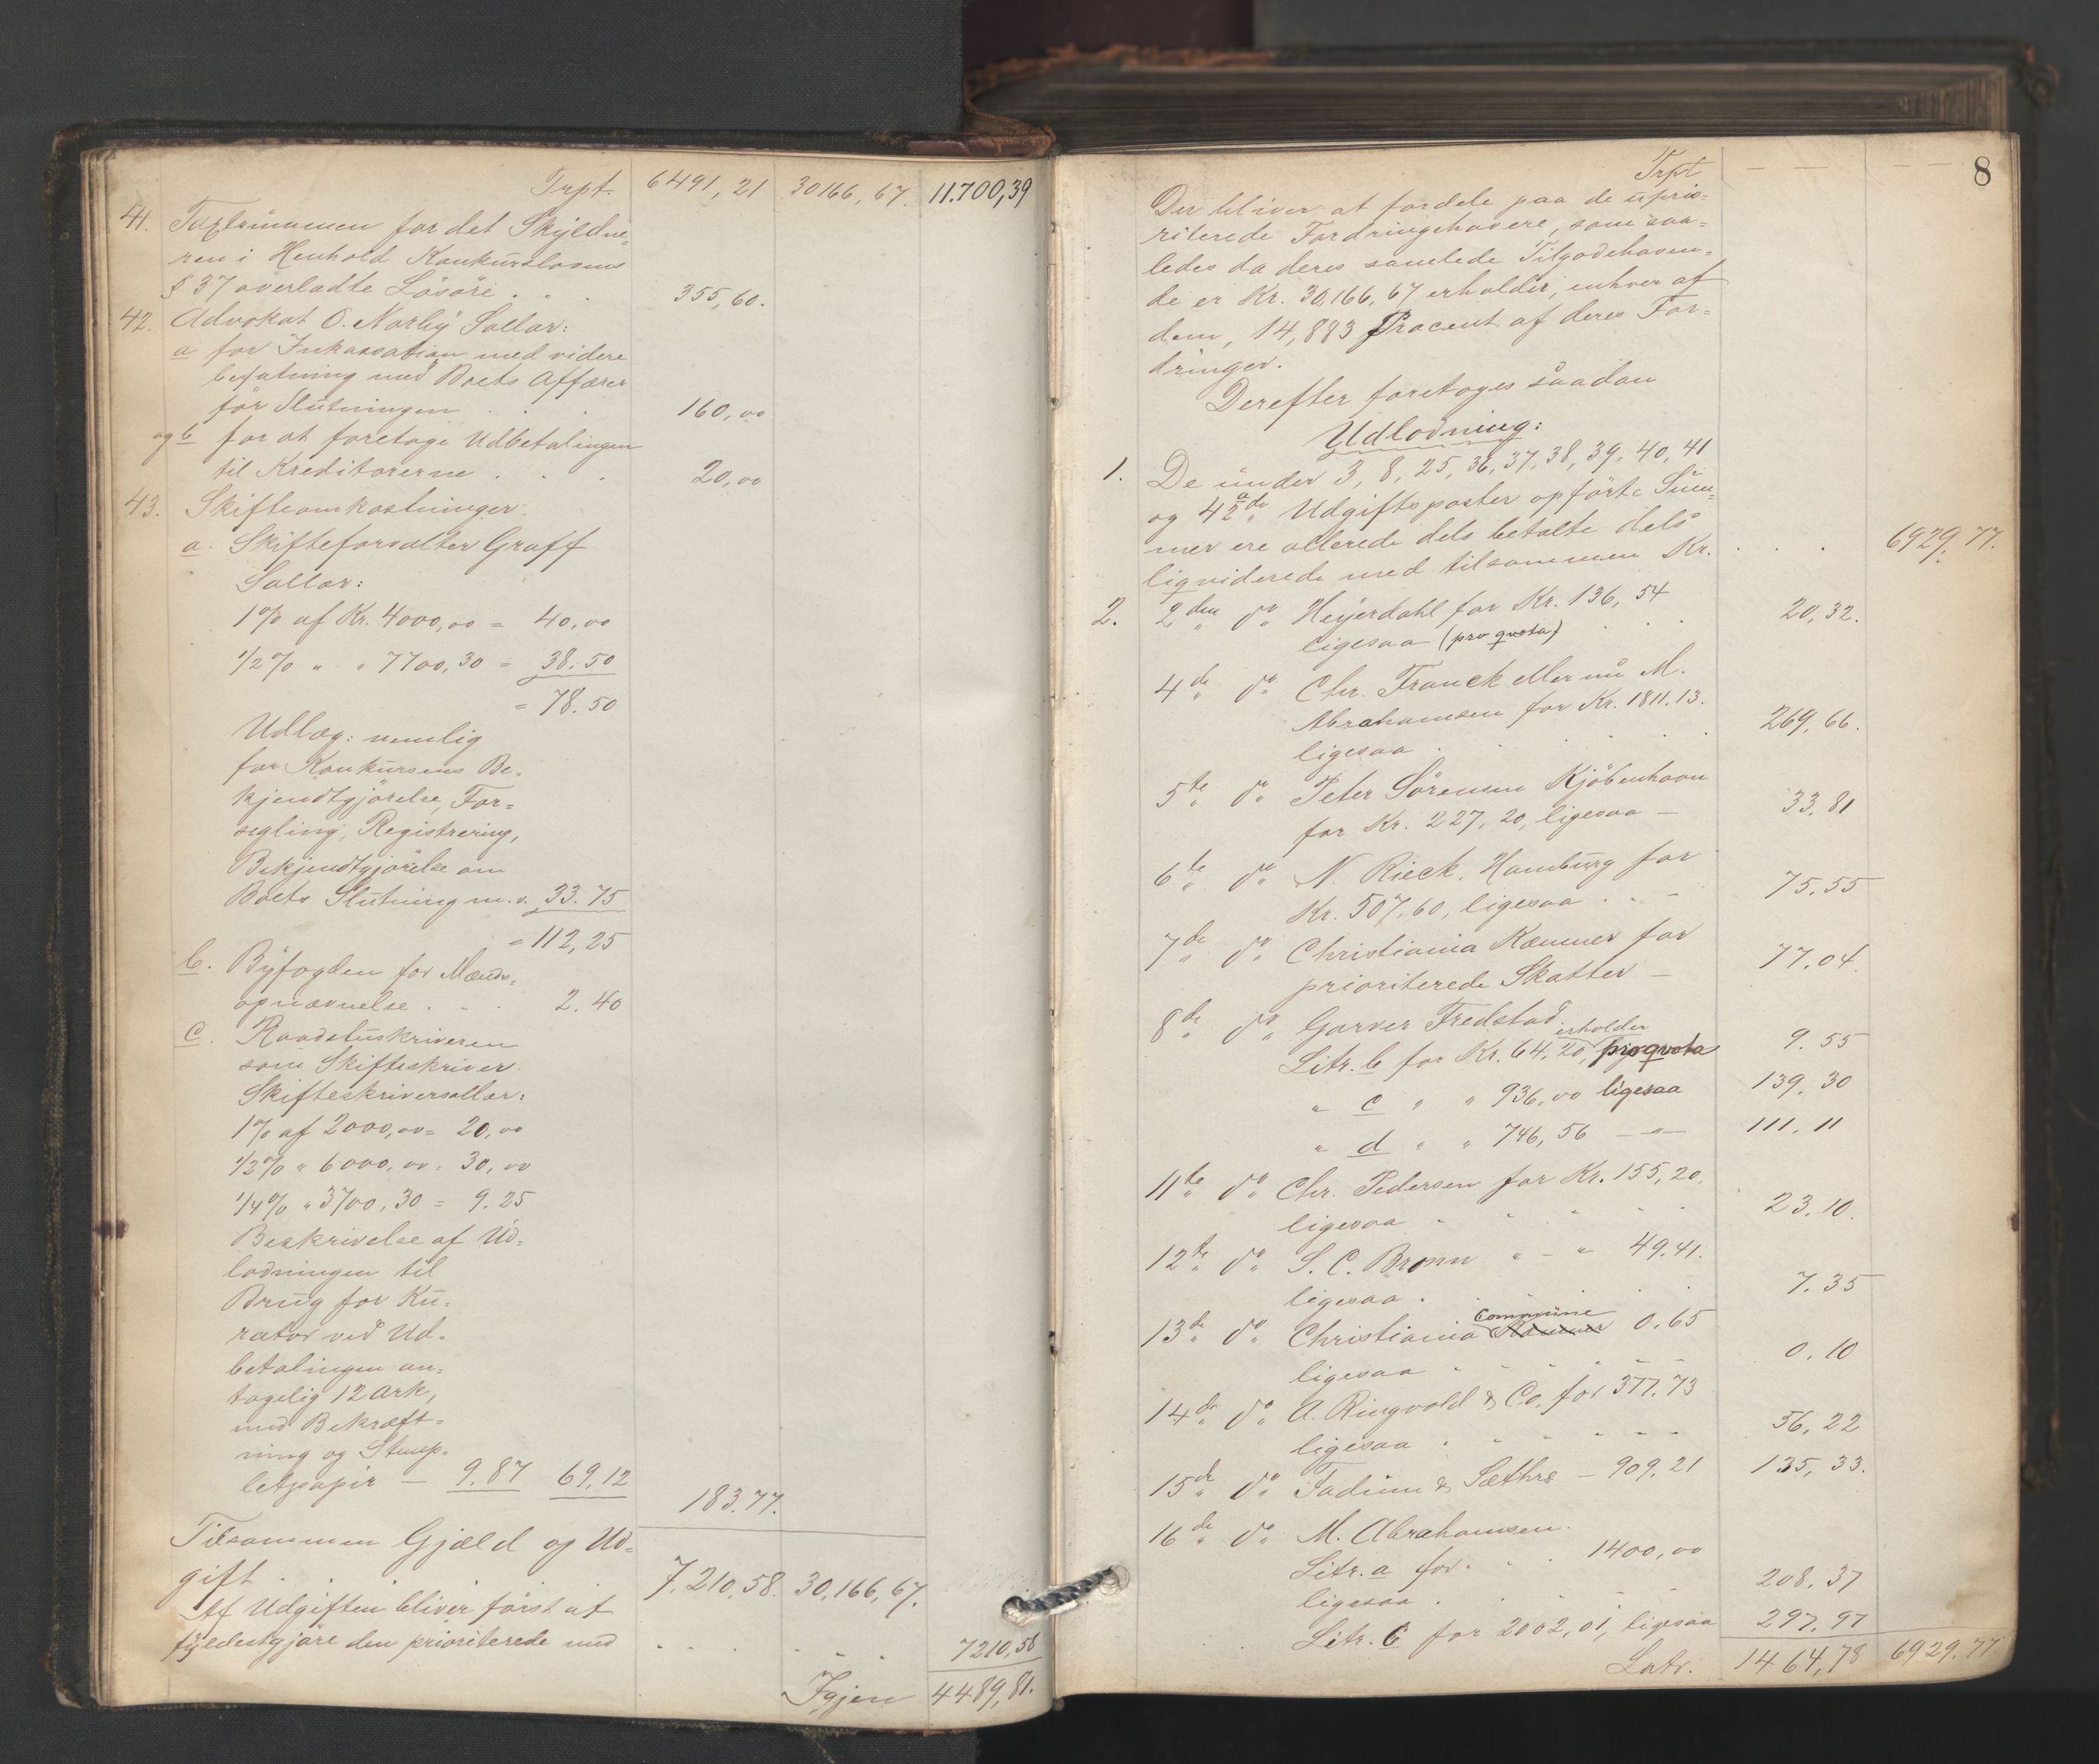 Trpt. 6491,21 30166,67. 11.700,39
41. Taxtsummen for det Skyldne-
ren i Henhold Konkurslovens
§ 37 overladte Lösöre . . . 355,60.
42. Advokat O. Narby Sallar:
a for Inkassation med videre
befatning med Boets Affærer
för Slutningen . . . 160,00
og b for at foretage Udbetalingen
til Kreditorerne . . . 20,00
43. Skifteomkostninger.
a. Skifteforvalter Graff
Sallar:
1% af Kr. 4000,00 = 40,00
1/2% " " 7700,30 = 38.50
= 78.50
Udlæg: nemlig
for Konkursens Be-
kjendtgjörelse, For-
segling, Registrering,
Bekjendtgjörelse om
Boets Slutning m. v. 33.75
= 112,25
b. Byfogden for Mænds-
opnævnelse . . . 2.40
c. Raadstuskriveren
som Skifteskriver.
Skifteskriversallar:
1% af 2000,00 = 20,00
1/2% " 6000,00 = 30,00
1/4% " 3700,30 = 9.25
Beskrivelse af Ud-
lodningen til
Brug for Ku-
rator ved Ud-
betalingen an-
tagelig 12 Ark,
med Bekræft-
ning og Stemp-
letpapir — 9.87 69,12
183.77.
Tilsammen Gjæld og Ud-
gift . . . 7.210,58. 30,166,67.
Af Udgiften bliver först at
fyldestgjöre den prioriterede med . . . 7210,58
Igjen 4489,81.
8
Trpt
Der bliver at fordele paa de uprio-
riterede Fordringshavere, som saa-
ledes da deres samlede Tilgodehaven-
de er Kr. 30,166,67 erholder, enhver af
dem, 14,883 Procent af deres For-
dringer.
Derefter foretages saadan
Udlodning:
1. De under 3, 8, 25, 36, 37, 38, 39, 40, 41
og 42 a de Udgiftsposter opförte Sum-
mer ere allerede dels betalte dels
liqviderede med tilsammen Kr. . . . 6929.77.
2. 2den do Heyerdahl for Kr. 136,54
ligesaa (pro quota) . . . 20,32.
4de do Chr. Franck eller nu M.
Abrahamsen for Kr. 1811.13.
ligesaa . . . 269,66.
5te do Peter Sörensen Kjöbenhavn
for Kr. 227,20, ligesaa — 33.81
6te do N. Rieck, Hamburg for
Kr. 507,60, ligesaa . . — 75.55
7de do Christiania Kæmner for
prioriterede Skatter — 77.04.
8de do Garver Fredstad
erholder
Litr. b for Kr. 64,20, pro quota 9.55
" c " " 936,00 ligesaa 139,30
" d " " 746,56 — " — 111.11
11te do Chr. Pedersen for Kr. 155,20,
ligesaa . . . 23.10.
12te do S. C. Bronn " - " 49.41.
ligesaa . . . 7.35
Commune
13de do Christiania Kæmner 0.65
ligesaa . . . 0.10
14de do A. Ringvold & Co. for 377.73
ligesaa . . . 56,22
15de do Fadum & Sæthre — 909.21 135,33.
16de do M. Abrahamsen.
Litr. a for . . . 1400,00
ligesaa . . . 208.37
Litr. C for 2002,01, ligesaa 297,97
Latr. 1464,78 6929.77